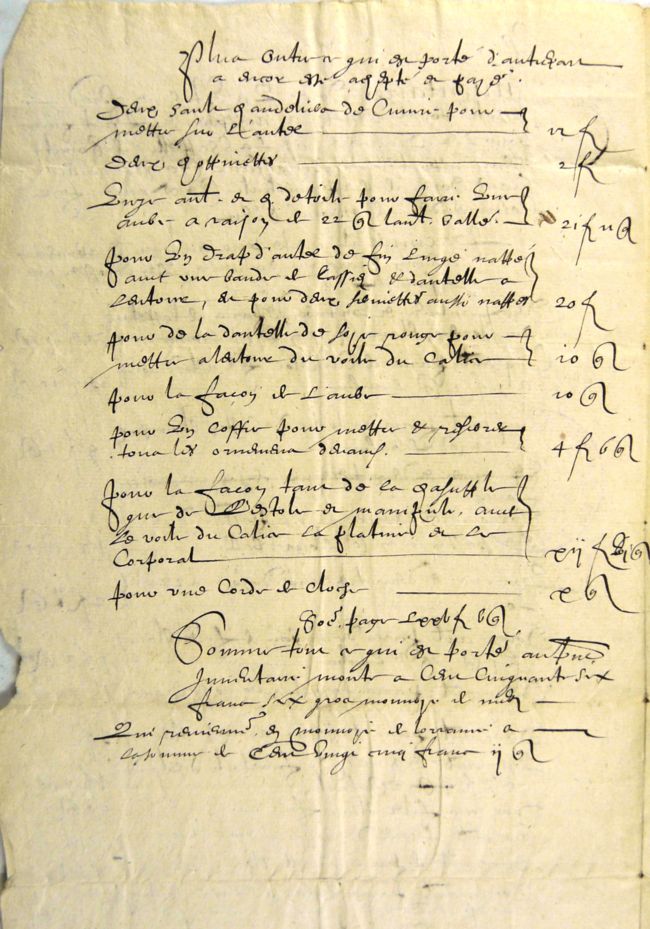 Plus outre ce qui est porté d'autrepart
a encor esté achepté et payé.
Deux hault chandeliers de Cuivre pour
mettre sur l'autel 12 f
deux choppinettes 2 f
Unze aul. et de toile pour faire une
aube a raison de 22 g l'aul. vallẽ. 21 f 11 g
pour un drap d'autel de fin linge nappé
avec une bande de et dantelle a
l'entour, et pour deux serviettes aussi nappées 20 f
pour de la dantelle de soye rouge pour
mettre alentour du voile du Calice 10 g
pour la façon de l'aube 10 g
pour un coffre pour mettre et reserer
tous les ornemens devant. 4 f 6 g
pour la façon tant de la chasuble
que de l'estole et manipule, avec
le voile du Calice la platine et le
Corporal xij f g
pour une Corde de cloche x g
So.e page lxxv f 6 g
Somme tout ce qui est porté au pñt
Inventaire monte a Cent Cinquante six
franc six gros monnoye de
Qui reviennẽt en monnoye de lorraine a
la somme de Cent vingt cinq franc ij g